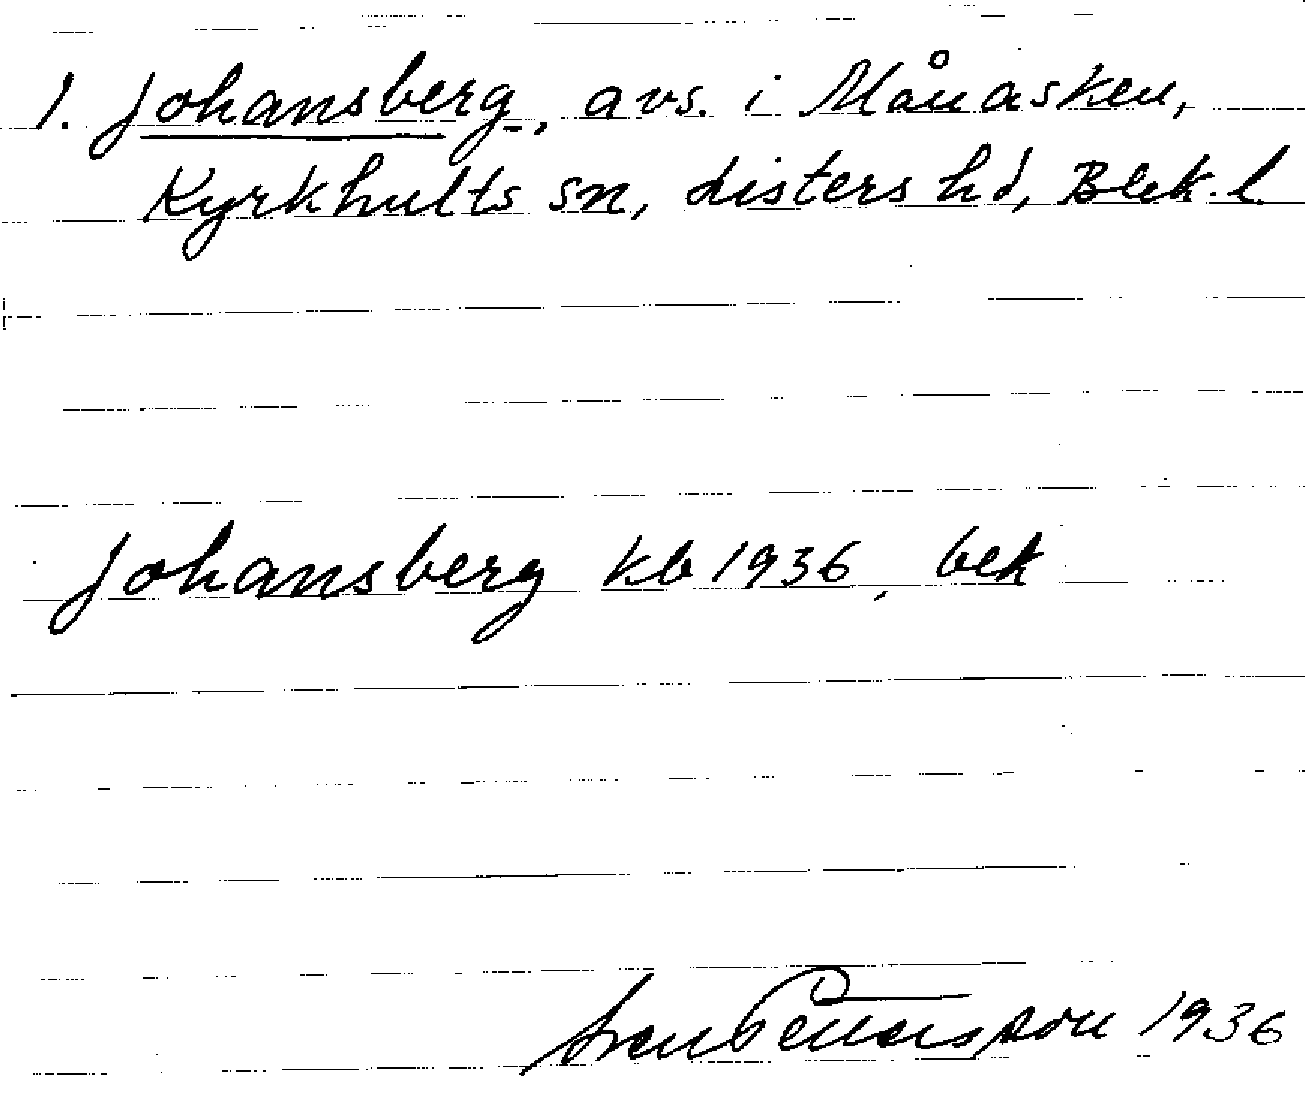 1. Johansberg, avs. i Månasken,
Kyrkhults sn, Listers hd, Blek. l.
Johansberg kb 1936, bek
Sven Pettersson 1936